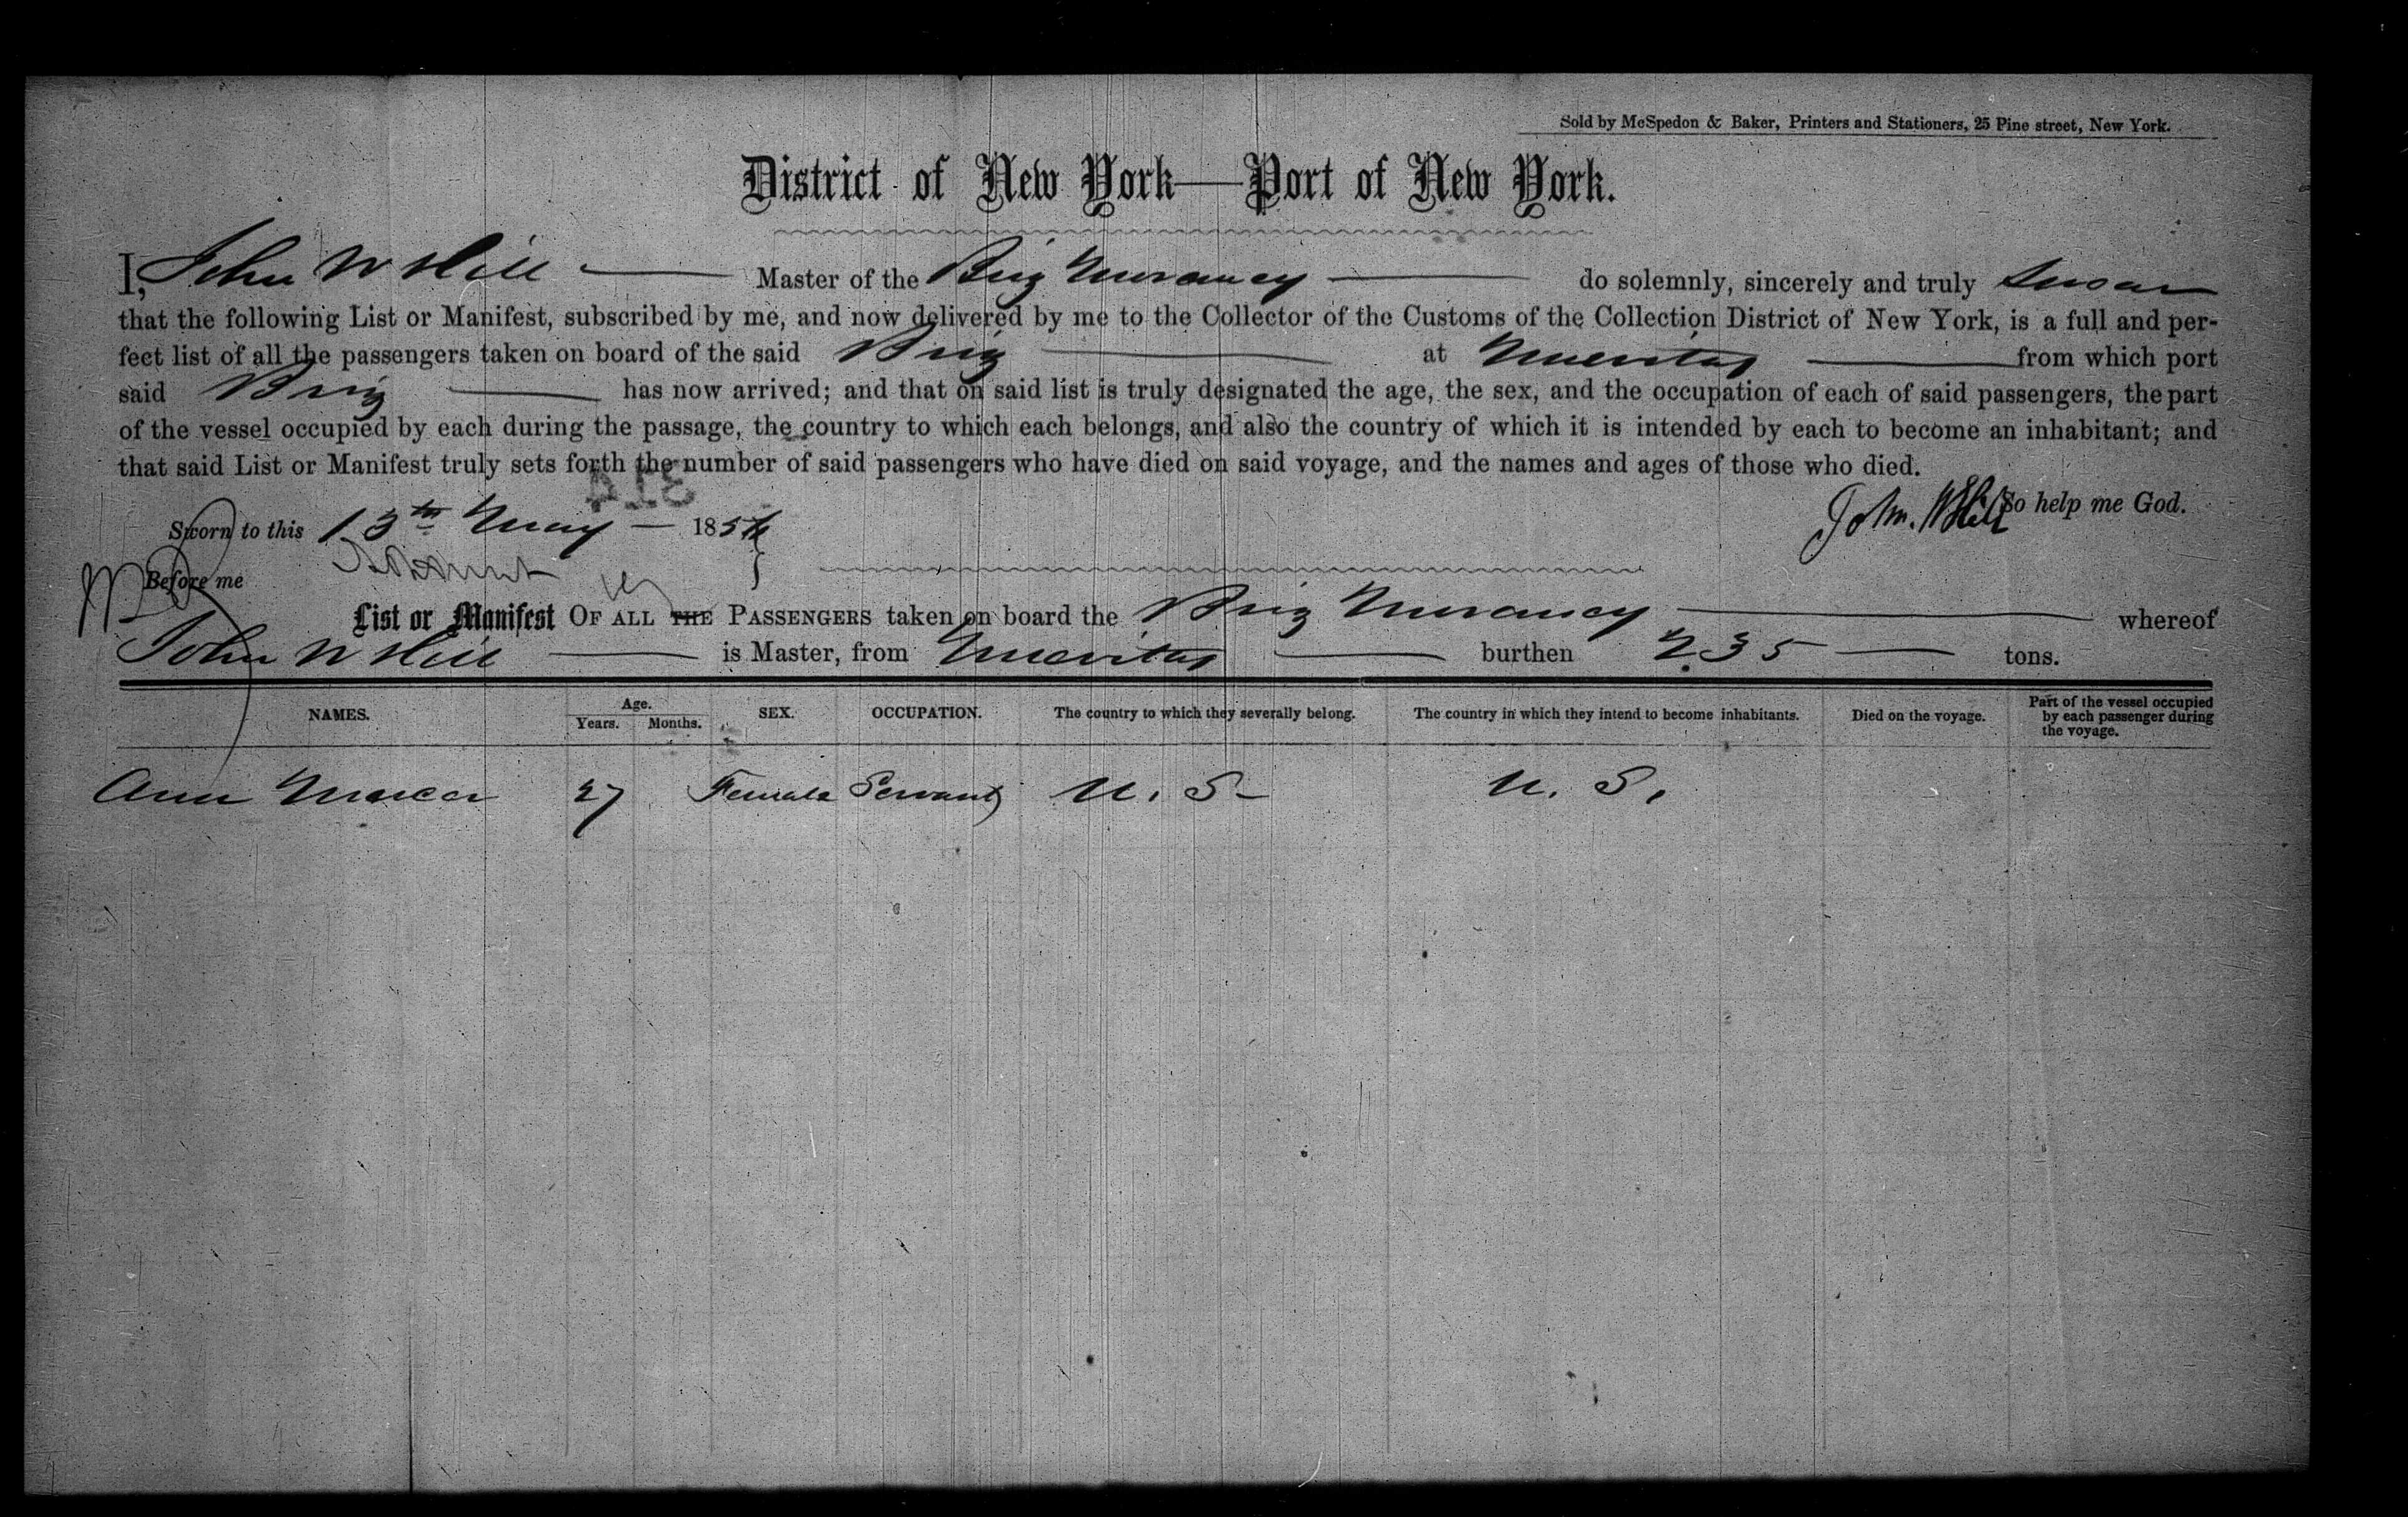 Sold by McSpedon & Baker, Printers and Stationers, 25 Pine street, New York.
District of New York—Port of New York.
I, John W Hill — Master of the Brig — do solemnly, sincerely and truly Swear
that the following List or Manifest, subscribed by me, and now delivered by me to the Collector of the Customs of the Collection District of New York, is a full and per-
fect list of all the passengers taken on board of the said Brig — at Nuevitas — from which port
said Brig — has now arrived; and that on said list is truly designated the age, the sex, and the occupation of each of said passengers, the part
of the vessel occupied by each during the passage, the country to which each belongs, and also the country of which it is intended by each to become an inhabitant; and
that said List or Manifest truly sets forth the number of said passengers who have died on said voyage, and the names and ages of those who died.
John. W Hill So help me God.
Sworn to this 13th May — 185
Before me
List or Manifest OF ALL THE PASSENGERS taken on board the Brig — whereof
John W Hill — is Master, from Nuevitas — burthen 235 — tons.
NAMES. Age. Years. Months. SEX. OCCUPATION. The country to which they severally belong. The country in which they intend to become inhabitants. Died on the voyage. Part of the vessel occupied by each passenger during the voyage.
Ann 27 Female Servant U. S- U. S.